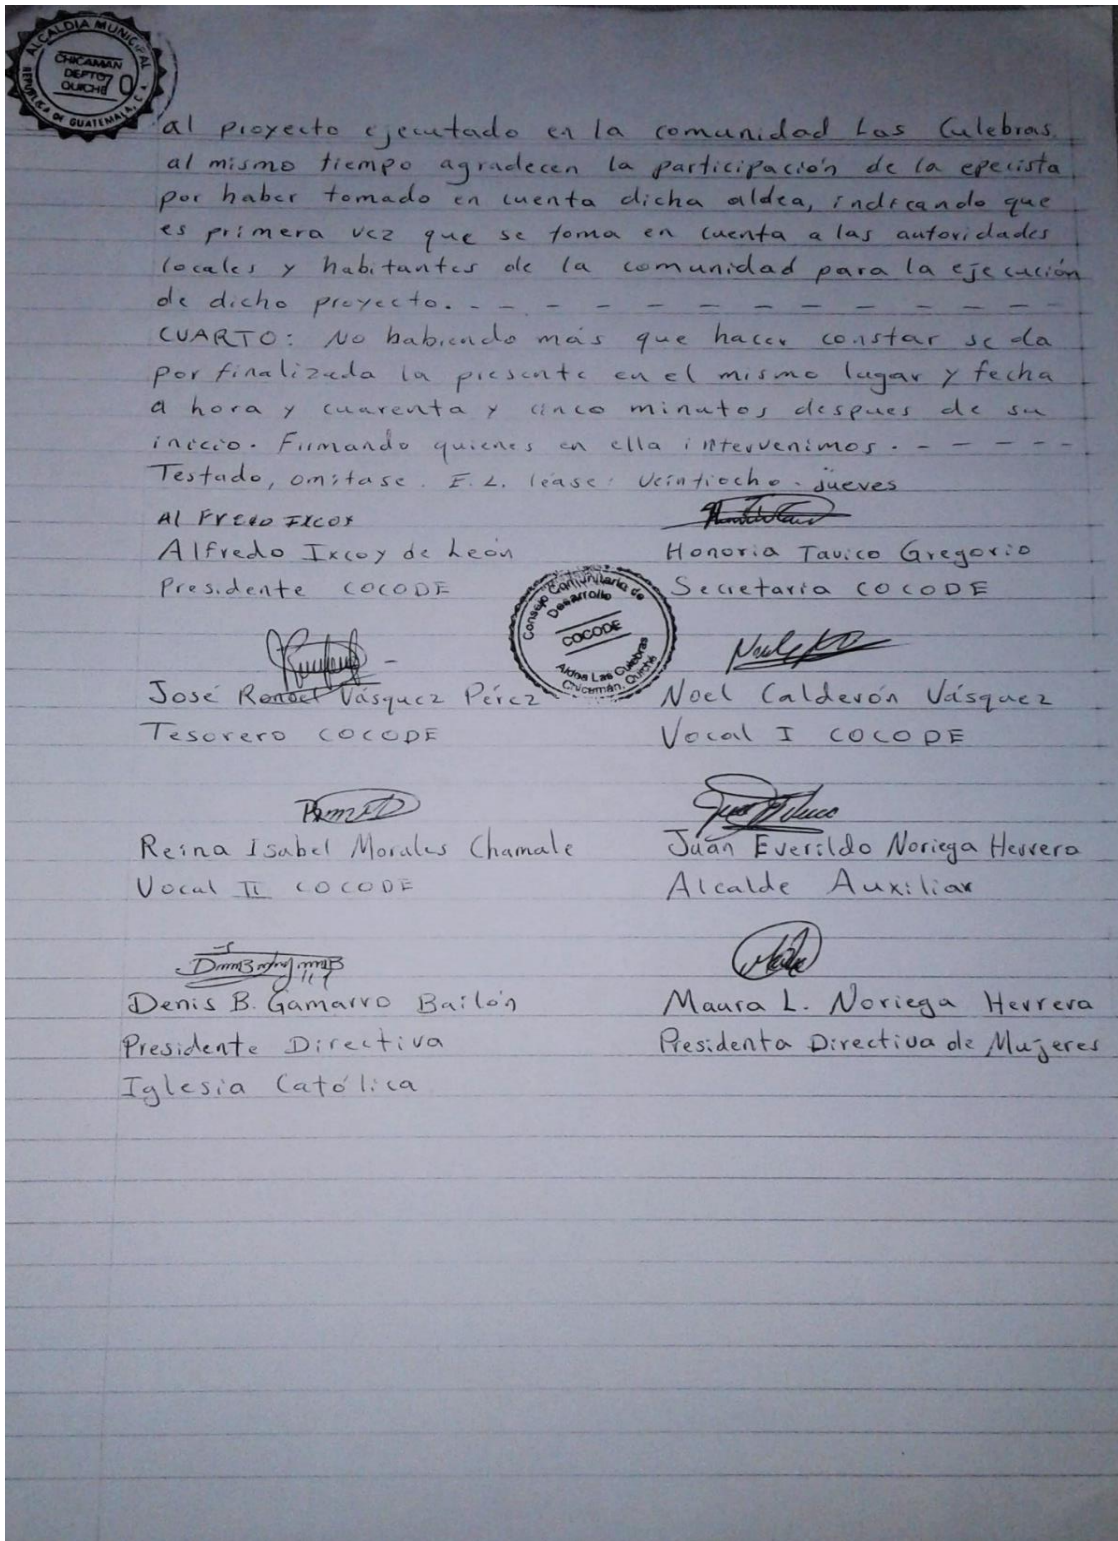 ALCALDIA MUNICIPAL
CHICAMAN
DEPTO
QUICHE
70
REPUBLICA DE GUATEMALA, C. A.
al proyecto ejecutado en la comunidad Las Culebras.
al mismo tiempo agradecen la participación de la epecista
por haber tomado en cuenta dicha aldea, indicando que
es primera vez que se toma en cuenta a las autoridades
locales y habitantes de la comunidad para la ejecución
de dicho proyecto. - - - - - - - - - - -
CUARTO: No habiendo más que hacer constar se da
por finalizada la presente en el mismo lugar y fecha
a hora y cuarenta y cinco minutos despues de su
inicio. Firmando quienes en ella intervenimos. - - - - -
Testado, omitase. E.L. léase: Veintiocho. jueves
AlFREdo IXCOY
Alfredo Ixcoy de León Honoria Tavico Gregorio
Presidente COCODE Secretaria COCODE
Consejo Comunitario de
Desarrollo
COCODE
Aldea Las Culebras
Chicamán, Quiché
José Ronoel Vásquez Pérez Noel Calderón Vásquez
Tesorero COCODE Vocal I COCODE
Reina Isabel Morales Chamale Juan Everildo Noriega Herrera
Vocal II COCODE Alcalde Auxiliar
Denis B. Gamarro Bailón Maura L. Noriega Herrera
Presidente Directiva Presidenta Directiva de Mujeres
Iglesia Católica